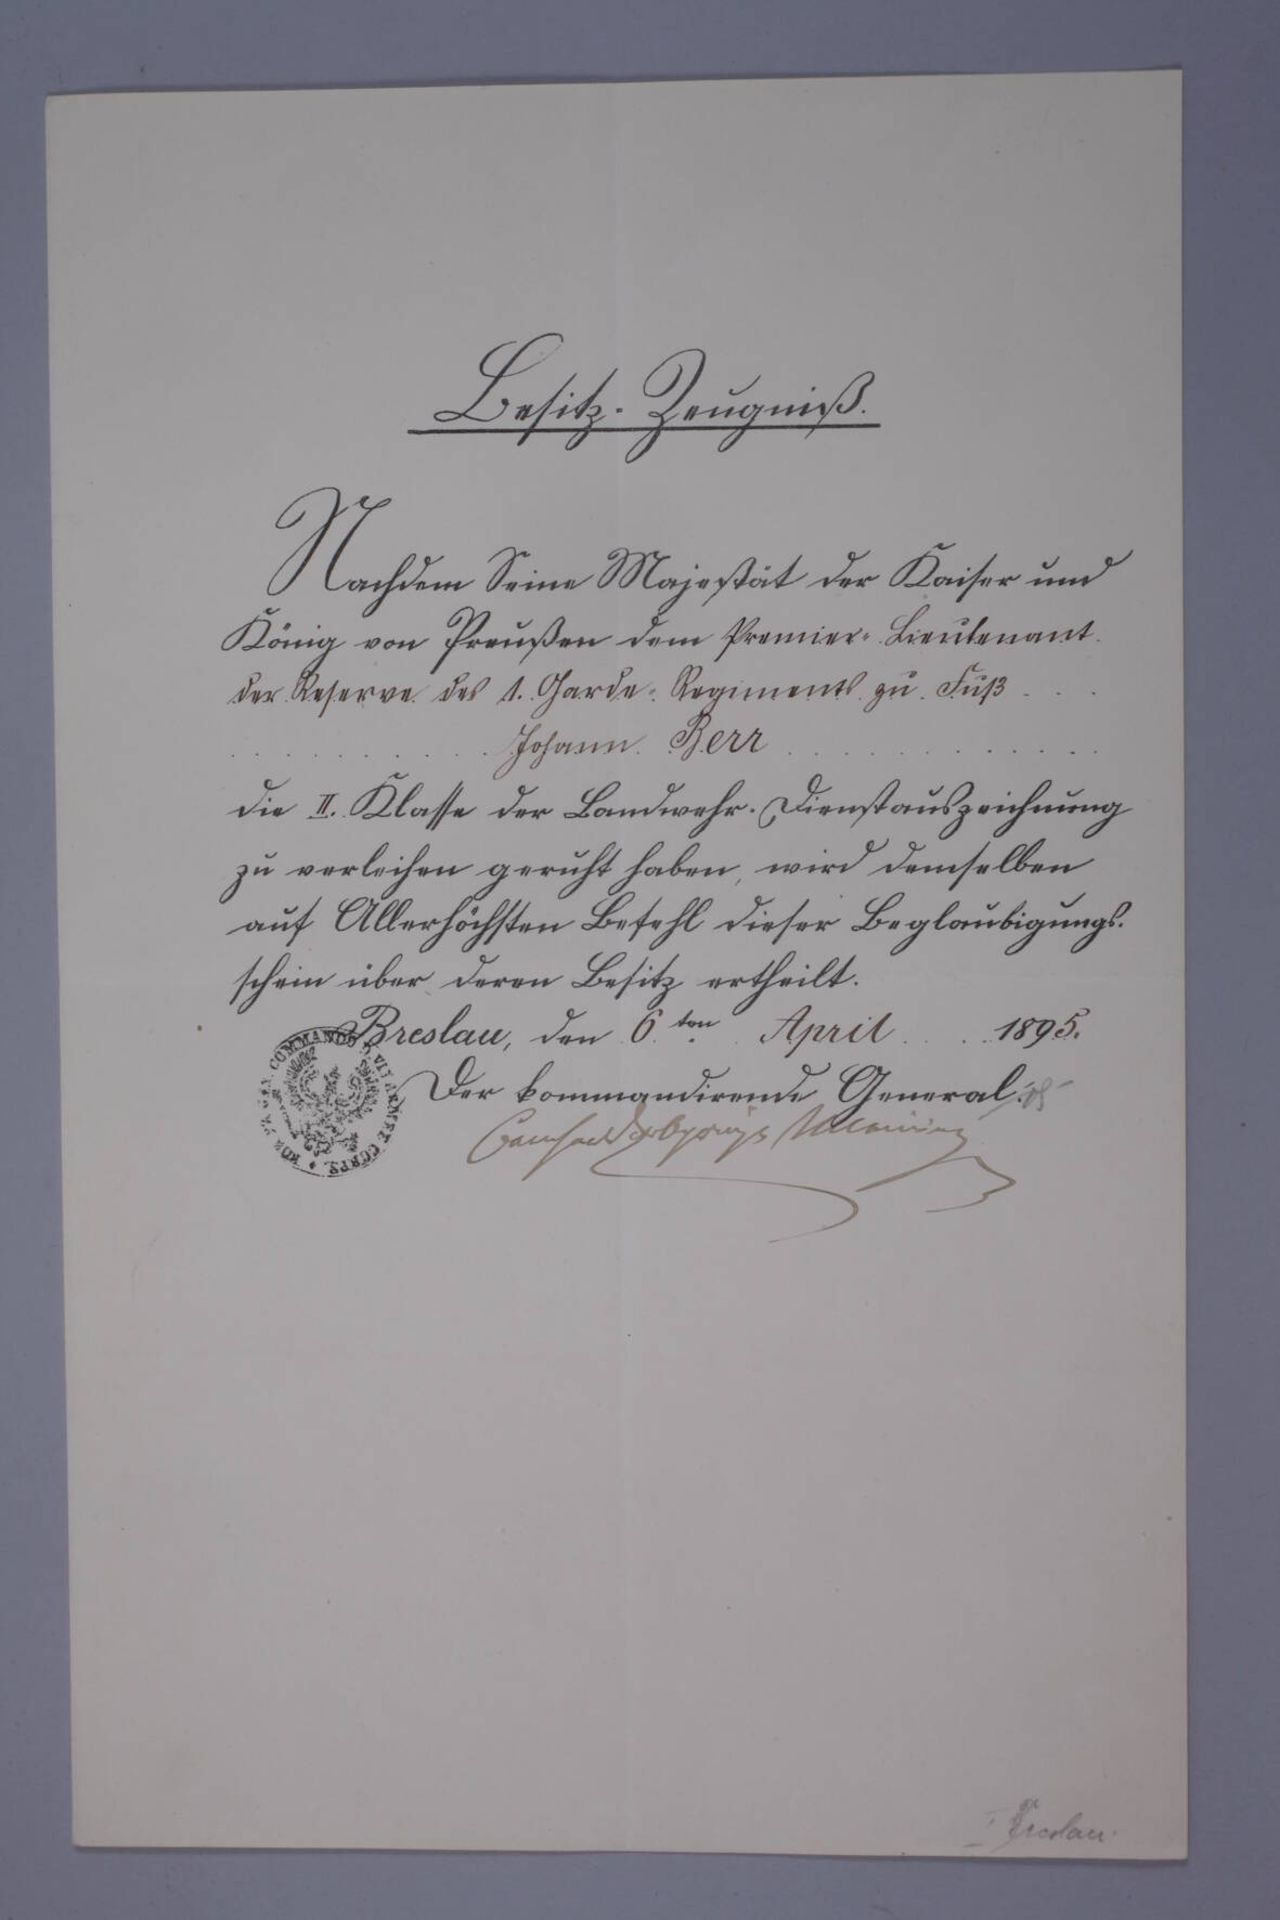 Besitz-Zeugniß.
Nachdem Seine Majestät der Kaiser und
König von Preußen dem Premier-Lieutenant
der Reserve des 1. Garde-Regiments zu Fuß
Johann Berr
die II. Klasse der Landwehr-Dienstauszeichnung
zu verleihen geruht haben, wird demselben
auf Allerhöchsten Befehl dieser Beglaubigungs-
schein über deren Besitz ertheilt.
Breslau, den 6ten April 1895.
Der kommandirende General:
COMMANDO VI. ARMEE CORPS
I Breslau.